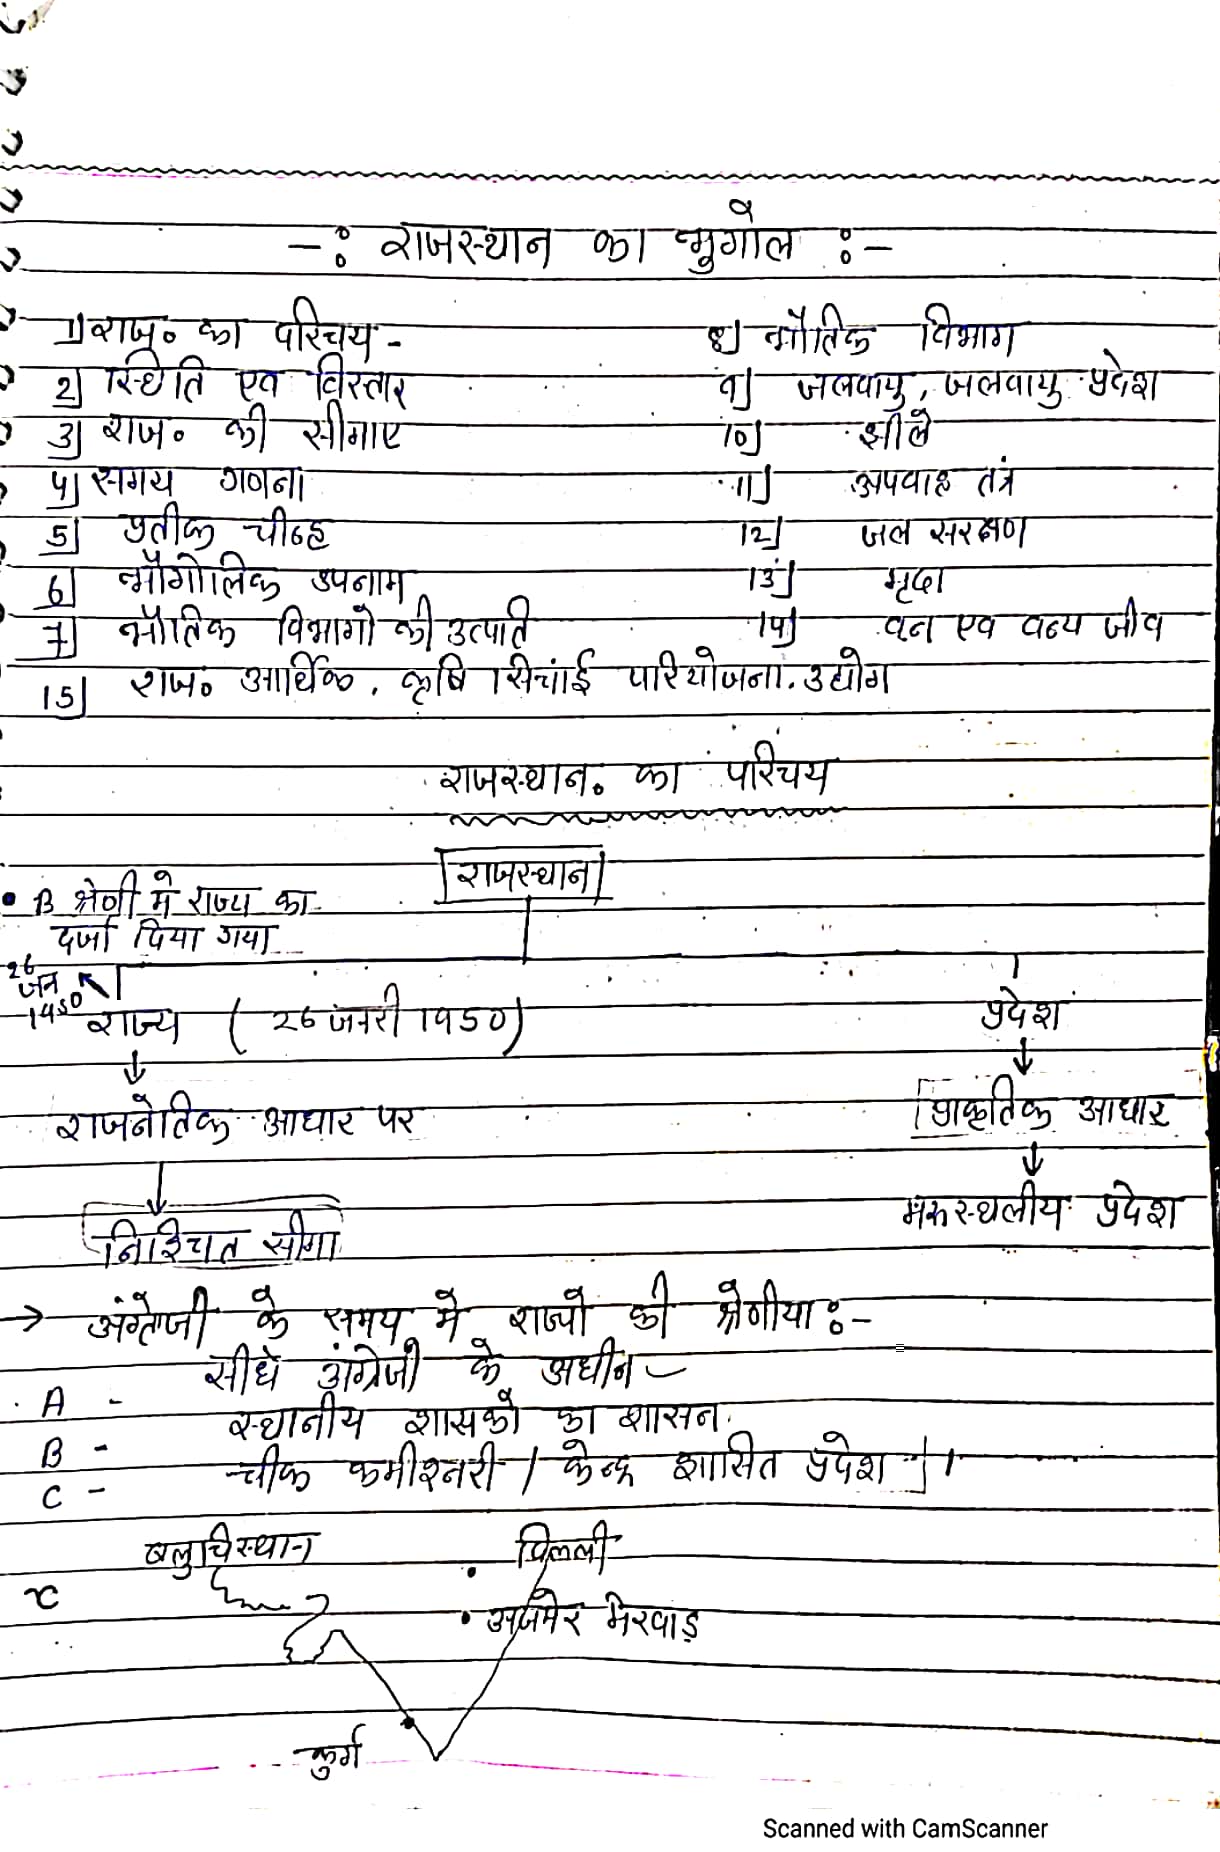 -: राजस्थान का भुगोल :-
1) राज॰ का परिचय -
2) स्थिति एव विस्तार
3) राज॰ की सीमाए
4) समय गणना
5) प्रतीक चीन्ह
6) भौगोलिक उपनाम
7) भौतिक विभागो की उत्पति
8) भौतिक विभाग
9) जलवायु, जलवायु प्रदेश
10) झीले
11) अपवाह तंत्र
12) जल सरक्षण
13) मृदा
14) वन एव वन्य जीव
15) राज॰ आर्थिक, कृषि सिचांई परियोजना, उद्योग
राजस्थान॰ का परिचय
राजस्थान
• B श्रेणी मे राज्य का
दर्जा दिया गया
26
जन
1950
राज्य ( 26 जनरी 1950)
प्रदेश
↓ ↓
राजनेतिक आधार पर
प्राकृतिक आधार
↓ ↓
निश्चित सीमा
मरूस्थलीय प्रदेश
→ के समय मे राज्यो की श्रेणीया :-
A - सीधे अंग्रेजो के अधीन -
B - स्थानीय शासको का शासन
C - चीफ कमीश्नरी / केन्द्र शासित प्रदेश ।
बलुचिस्थान
• दिल्ली
• अजमेर मेरवाड़
कुर्ग
Scanned with CamScanner